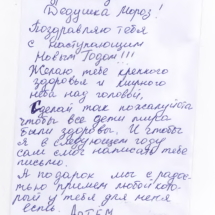 Дедушка Мороз!
Поздравляю тебя
с наступающим
Новым Годом!!!
Желаю тебе крепкого
здоровья и мирного
неба над головой,
Сделай так пожалуйста
чтобы все дети мира
были здоровы. И чтобы
я в следующем году
сам смог написать тебе
письмо.
А подарок мог с радос-
тью примем любой кото-
рый у тебя для меня
есть.
Артем